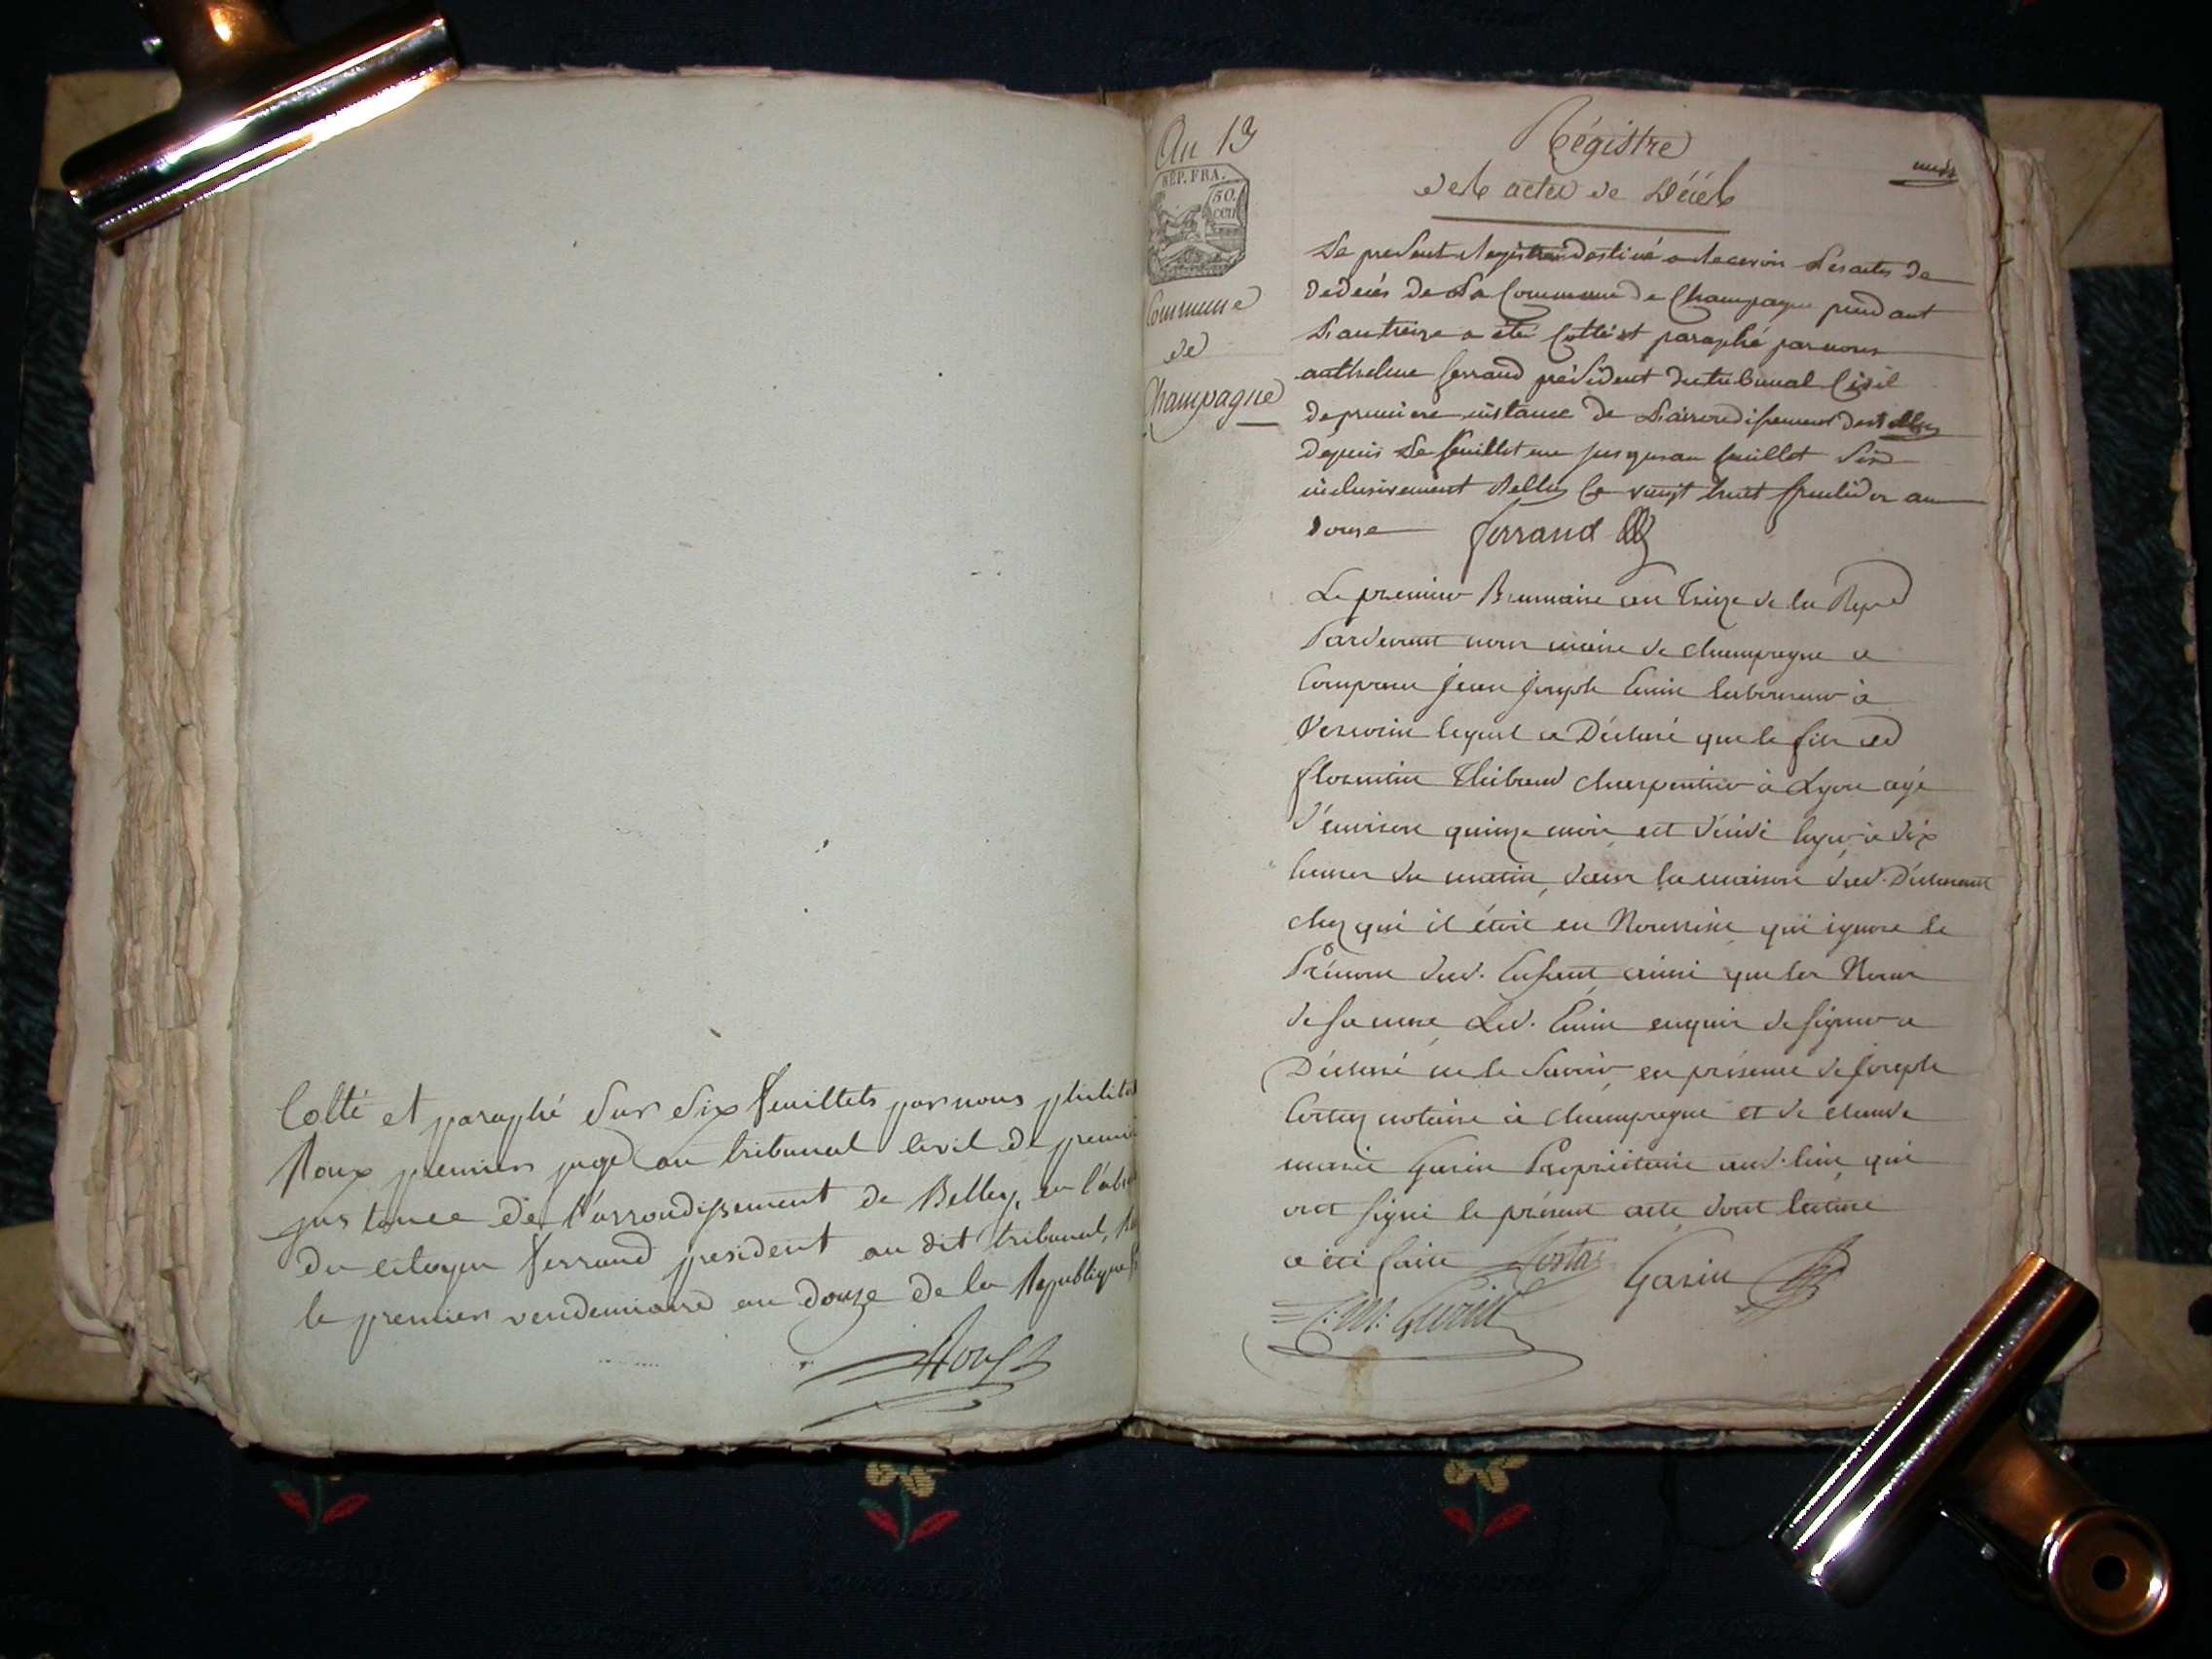 Cotté et paraphé Sur Six feuillets par nous philibe
Roux premier juge au tribunal Civil de premie
instance de l'arrondissement de Belley, en l'abs
du citoyen ferrand president au dit tribunal,
le premier vendemiaire an douze de la Republique
Roux
An 13
RÉP. FRA.
50.
cen
Commune
de
Champagne
Régistre
des actes de Décès
Le present Registre destiné a Recevoir Les actes de
de décés de La Commune de Champagne pendant
L'an treize a été Cotté et paraphé par nous
anthelme ferrand président du tribunal Civil
de premiere instance de L'arrondissement de Belley
depuis Le feuillet un jusqu'au feuillet Six
inclusivement Belley Ce vingt huit fructidor an
douze ferrand
Le premier Brumaire an Treize de la Rep.
Pardevant nous maire de champagne a
Comparu Jean Joseph Emin laboureur à
lequel a Déclaré que le fils de
florentin Thibaud charpentier à Lyon agé
d'environ quinze mois est décédé hyer à dix
heures du matin, dans la maison dud. Déclarant
chez qui il étoit en Nourrice, qui ignore le
Prénom dud. Enfant, ainsi que les Noms
de sa mere, Led. Emin enquis de signer a
Déclaré ne le Savoir, en présence de Joseph
notaire à champagne et de claude
marie Garin Propriétaire aud. lieu, qui
ont signé le présent acte, dont lecture
a été faite
Garin
C: M: Garin